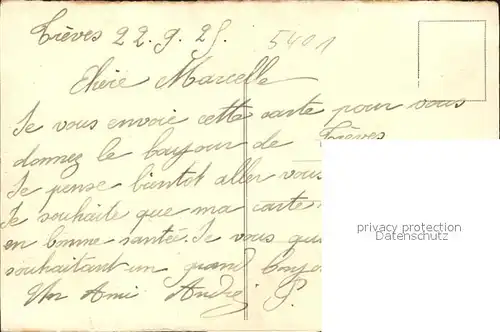 Trèves 22.9.25.
5401
Chére Marcelle
Je vous envoie cette carte pour vous
donnez le bonjour de Trèves
Je pense bientot aller vous
Je souhaite que ma carte
en bonne santée. Je vous
souhaitant un grand
Un Ami André P.
privacy protection
Datenschutz